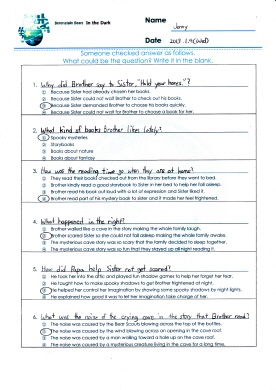 Berenstain Bears In the Dark
Name Jenny
Date 2019.1.9(Wed)
Someone checked answer as follows.
What could be the question? Write it in the blank.
1. Why did Brother say to Sister, "Hold your horses."?
① Because Sister had already chosen her books.
② Because Sister could not wait Brother to check out his books.
③ Because Sister demanded Brother to choose his books quickly.
④ Because Sister could not wait for Brother to choose a book for her.
2. What kind of books Brother likes lately?
① Spooky mysteries
② Storybooks
③ Books about nature
④ Books about fantasy
3. How was the reading time go when they are at home?
① They read their books checked out from the library before they went to bed.
② Brother kindly read a good storybook to Sister in her bed to help her fall asleep.
③ Brother read his book out loud with a lot of expression in his reading.
④ Brother read part of his mystery book to sister and it made her feel frightened.
4. What happened in the night?
① Brother walked like a cave in the story making the whole family laugh.
② Brother scared Sister so she could not fall asleep making the whole family awake.
③ The mysterious cave story was so scary that the family decided to sleep together.
④ The mysterious cave story was so fun that they stayed up all night reading it.
5. How did Papa help Sister not get scared?
① He took her into the attic and played fun shadow games to help her forget her fear.
② He taught how to make spooky shadows to get Brother frightened at night.
③ He helped her control her imagination by showing some spooky shadows by night lights.
④ He explained how good it was to let her imagination take charge of her.
6. What was the noise of the crying cave in the story that Brother read?
① The noise was caused by the Bear Scouts blowing across the top of the bottles.
② The noise was caused by the wind blowing across an opening in the cave roof.
③ The noise was caused by a man wailing toward a hole up on the cave roof.
④ The noise was caused by a mysterious creature living in the cave for a long time.